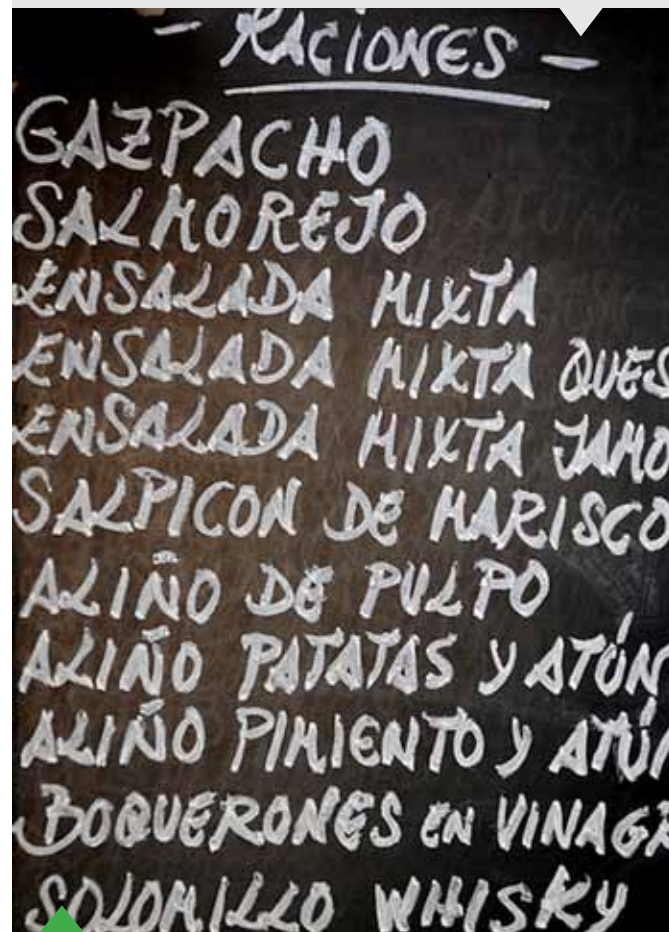 - RACIONES -
GAZPACHO
SALMOREJO
ENSALADA MIXTA
ENSALADA MIXTA QUES
ENSALADA MIXTA JAMO
SALPICON DE MARISCO
ALIÑO DE PULPO
ALIÑO PATATAS Y ATÚN
ALIÑO PIMIENTO Y ATÚN
BOQUERONES EN VINAGR
SOLOMILLO WHISKY